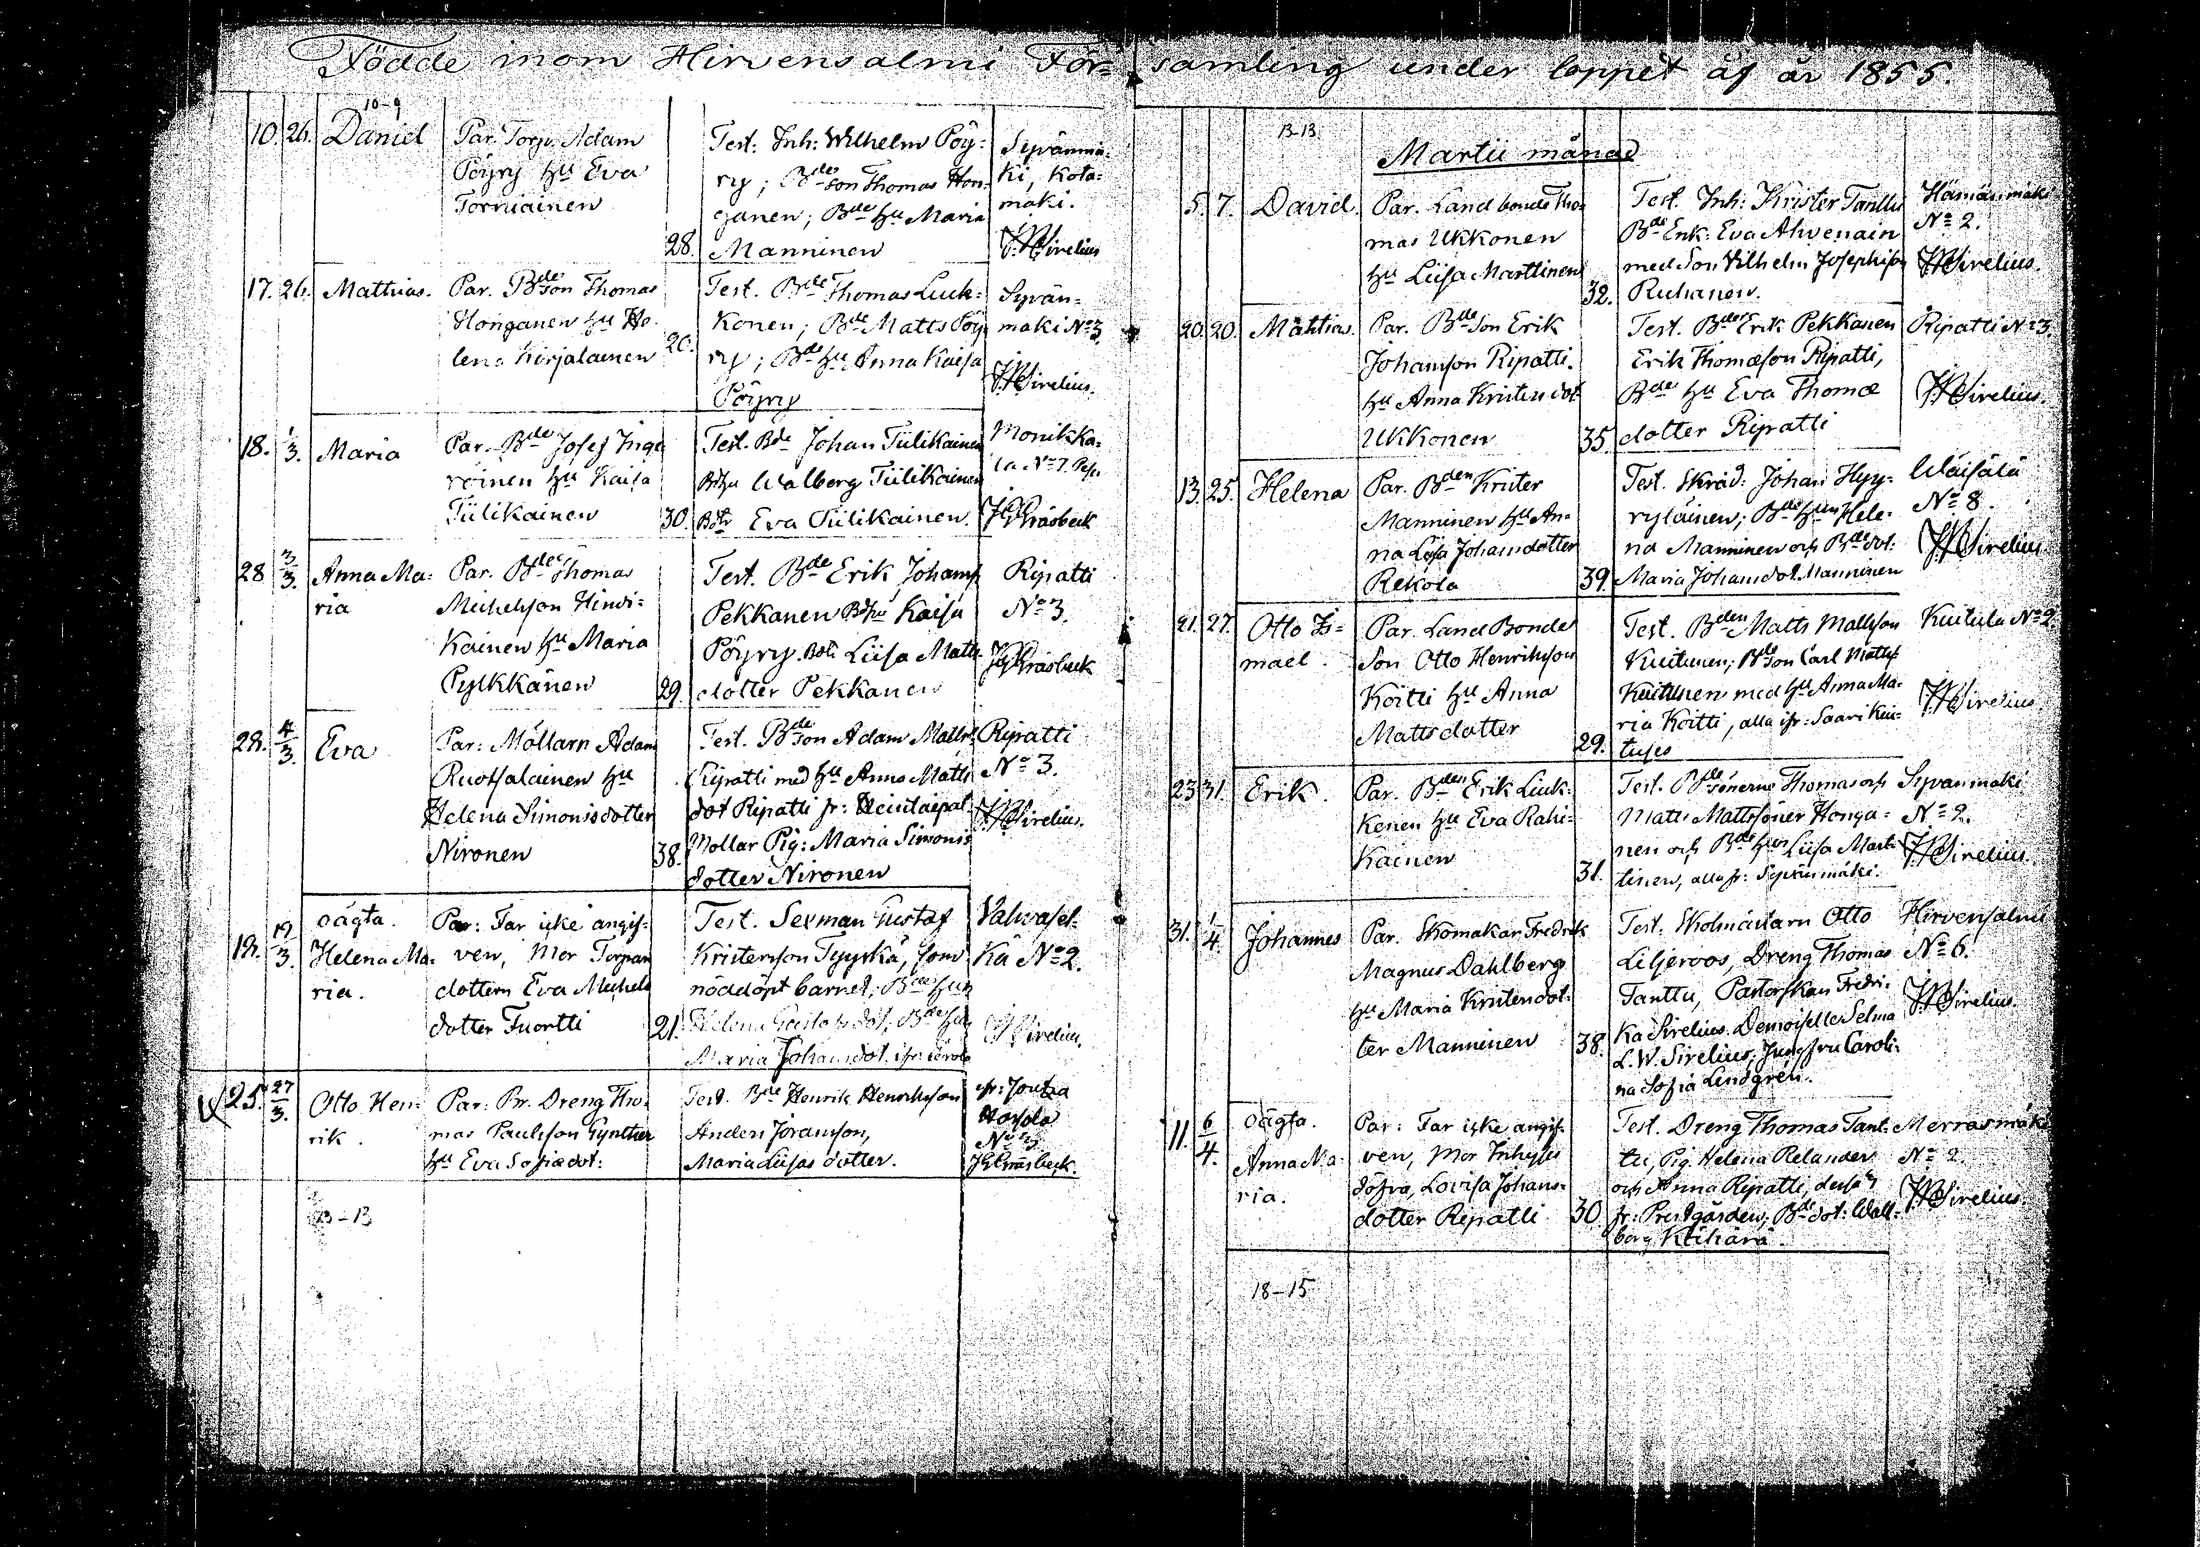 Födde inom Hirvensalmi För= samling under loppet af år 1855.
10-9
10. 26. Daniel Par. Torp. Adam
Pöyry hu Eva
Torniainen
28.
Test. Inh: Wilhelm Pöy=
ry; Bde son Thomas Hon=
ganen; Bde hu Maria
Manninen
Syvänmä=
ki, Kota=
mäki.
Sirelius
17. 26. Mathias. Par. Bde son Thomas
Honganen hu He=
lena Kirjalainen
20.
Test. Bde Thomas Luck=
konen; Bde Matts Pöy
ry; Bde hu Anna Kaisa
Pöyry
Syvän=
mäki No 3
Sirelius.
18. 1/3. Maria Par. Bde Josef Inge
roinen hu Kaisa
Tiilikainen
30.
Test. Bde Johan Tiilikainen
Bdhu Walberg Tiilikainen
Bdtr Eva Tiilikainen.
Monikka=
la No 7.
Gråsbeck
28 3/3. Anna Ma=
ria
Par. Bde Thomas
Michelsson Himoi=
kainen hu Maria
Pylkkänen
29.
Test. Bde Erik Johans
Pekkanen Bdhu Kaisa
Pöyry. Bdt: Liisa Matts
dotter Pekkanen
Ripatti
No 3.
Gråsbeck
28. 4/3. Eva Par: Möllarn Adam
Ruotsalainen hu
Helena Simonsdotter
Nironen
38.
Test. Bde son Adam Matts
Ripatti med hu Anna Matts
dot Ripatti fr:
Möllar Pig: Maria Simons
dotter Nironen
Ripatti
No 3.
Sirelius.
18. 19/3. oägta.
Helena Ma=
ria.
Par: Far icke angif=
ven, Mor Torpare
dottern Eva Michels
dotter Tuortti
21.
Test. Sexman Gustaf
Kristersson Tyyskä, som
nöddöpt barnet; Bde hun
Helena Gustafsdot; Bde hu
Maria Johansdot.
Valwasel=
kä No 2.
Sirelius.
25. 27/3. Otto Hen=
rik.
Par: Br. Dreng Tho=
mas Paulsson Gynther
hu Eva Sofiædot:
Test. Bde Henrik Henriksson
Anders Göransson,
Maria Liisas dotter.
fr: Joutsa
No 3
Gråsbeck.
13-13
13-13
Martii månad
5. 7. David. Par. Landbonde Tho=
mas Ukkonen
hu Liisa Marttinen
32.
Test. Inh: Krister Tanttu
Bde Enk: Eva Ahvenain
med Son Vilhelm Josephsson
Ruhanen.
Hämänmäki
No 2.
Sirelius.
20. 20. Mathias. Par. Bde Son Erik
Johansson Ripatti.
hu Anna Kristersdot
Ukkonen
35.
Test. Bde Erik Pekkanen
Erik Thomæson Ripatti,
Bdes hu Eva Thomæ
dotter Ripatti
Ripatti No 3.
Sirelius.
13. 25. Helena Par. Bden Krister
Manninen hu An=
na Lisa Johansdotter
Rekola
39.
Test. Skräd: Johan Hyy=
ryläinen; Bde hun Hele=
na Manninen och Bde dot.
Maria Johansdot. Manninen
Wäisälä
No 8.
Sirelius
21. 27. Otto Is=
mael.
Par. Land Bonde
Son Otto Henriksson
Koitti hu Anna
Mattsdotter
29.
Test. Bden Matts Mattsson
Kuitunen; Bde son Carl Matts
Kuitunen med hu Anna Ma=
ria Koitti, alla ifr: Saari Kui=
tula
Kuitula No 2
Sirelius.
23 31. Erik. Par. Bden Erik Luck=
konen hu Eva Rahi=
kainen
31.
Test. Bde sönerne Thomas och
Matts Mattssöner Honga=
nen och Bde hun Liisa Mart=
tinen, alla fr: Syvänmäki.
Syvänmäki
No 2.
Sirelius.
31. 1/4. Johannes Par. Skomakar Fredrik
Magnus Dahlberg
hu Maria Kristersdot=
ter Manninen
38.
Test. Skolmästarn Otto
Liljeroos, Dreng Thomas
Tanttu, Pastorskan Fredri=
ka Sirelius. Demoiselle Selma
L. W. Sirelius, Jungfru Caroli=
na Sofia Lindgrén.
Hirvensalmi
No 6.
Sirelius.
11. 6/4. oägta.
Anna Ma=
ria.
Par: Far icke angif=
ven, Mor Inhyses
Lovisa Johans=
dotter Ripatti
30.
Test. Dreng Thomas Tant=
tu, Pig. Helena Relander
och Anna Ripatti,
fr: Prestgården; Bde dot: Wall=
borg Kiihärä.
Merrasmäki
No 2.
Sirelius.
18-15